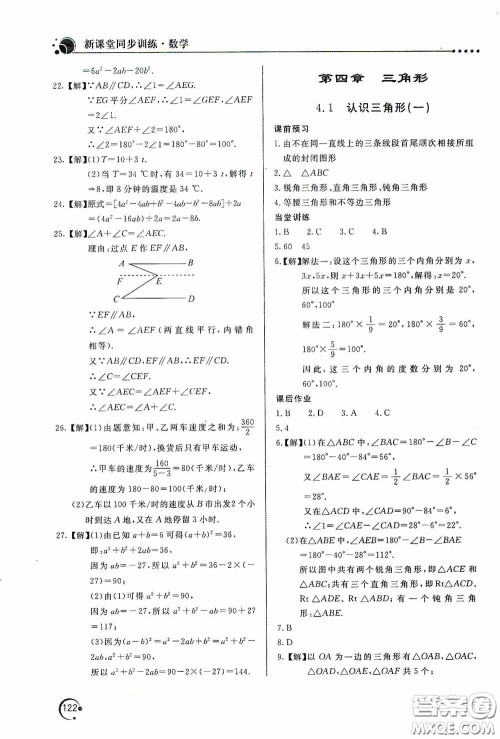 新课堂同步训练·数学
=6a²-2ab-20b².
22.【解】∵AB∥CD,∴∠1=∠AEG.
∵EG平分∠AEF,∴∠1=∠GEF,∠AEF=
2∠1.
又∵∠AEF+∠2=180°,
∴∠2=180°-2∠1=180°-80°=100°.
23.【解】(1)T=10+3t.
(2)当T=34 ℃时,有34=10+3t,解得t
=8,即8分钟的温度是34 ℃.
24.【解】原式=[4a²-4ab+b²-4ab-b²-8ab]÷2a
=(4a²-16ab)÷2a=2a-8b.
25.【解】∠A+∠C=∠AEC.
理由:过点E作EF∥AB,
A B
F E
C D
∵EF∥AB,
∴∠A=∠AEF(两直线平行,内错角
相等).
又∵AB∥CD,∴EF∥CD.
∴∠C=∠CEF.
又∵∠AEC=∠AEF+∠CEF,
∴∠AEC=∠A+∠C.
26.【解】(1)由题意知:甲、乙两车速度之和为:360/2
=180(千米/时),换货后只有甲车运动,
∴甲车的速度为160/(5-3)=80(千米/时),乙车的
速度为180-80=100(千米/时).
(2)乙车以100千米/时的速度从B市出发2个小
时到达A地,又在A地停留3小时.
27.【解】(1)由已知a+b=6可得(a+b)²=36,
即:a²+b²+2ab=36,
因为ab=-27,所以a²+b²=36-2×(-
27)=90.
(2)由(1)可得a²+b²=90,
因为ab=-27,所以a²+b²-ab=90+27
=117;
(3)因为(a-b)²=a²+b²-2ab,
a²+b²=90,
所以(a-b)²=90-2×(-27)=144.
122
第四章 三角形
4.1 认识三角形(一)
课前预习
1.由不在同一直线上的三条线段首尾顺次相接所组
成的封闭图形
2.△ △ABC
3.锐角三角形、直角三角形、钝角三角形
4.等腰三角形和不等边三角形
当堂训练
1.B 2.B 3.C 4.C
5.60 45
6.【解】解法一:设这个三角形的三个内角分别为x,
3x,5x,则x+3x+5x=180°,解得:x=20°.
所以这个三角形的三个内角分别是20°,
60°,100°.
解法二:180°×1/9=20°,180°×3/9=60°,
180°×5/9=100°.
因此,这三个内角的度数分别为20°,
60°,100°.
课后作业
1.B 2.D 3.B 4.A
5.4
6.【解】(1)在△ABC中,∠BAC=180°-∠B-∠C
=180°-40°-84°=56°,
又因为∠BAE=∠CAE=1/2∠BAC=1/2×56°
=28°.
又因为∠CAD=90°-84°=6°,
所以∠DAE=∠CAE+∠CAD=34°.
(2)在△ABE中,∠AEB=180°-∠B-∠BAE
=180°-40°-28°=112°,
所以图中共有两个锐角三角形,即△ACE和
△ABC;共有三个直角三角形,即Rt△ACD、
Rt△ADE、Rt△ABD;有一个钝角三角形
△ABE.
7.B
8.D
9.【解】以OA为一边的三角形有△OAB,△OAC,
△OAD,△OAE,△OAF共5个;